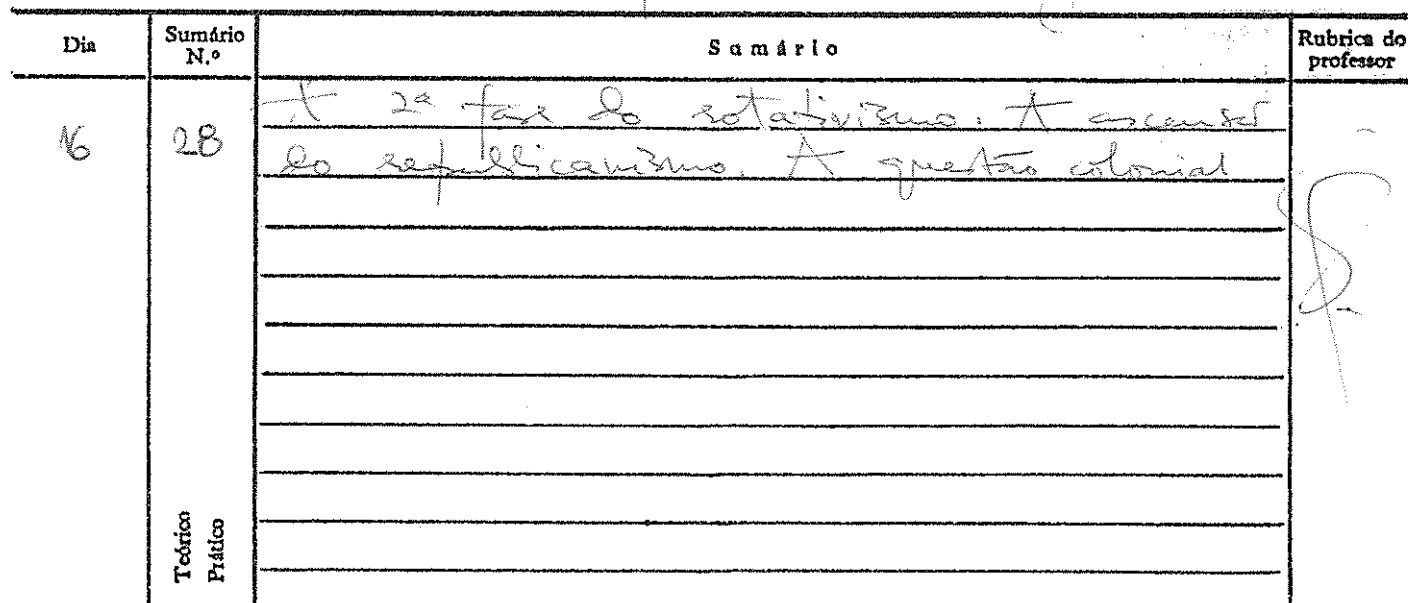 Dia
Sumário
N.º
Sumário
Rubrica do
professor
16
28
A 2ª fase do rotativismo. A ascensão
do republicanismo. A questão colonial
Teórico
Prático